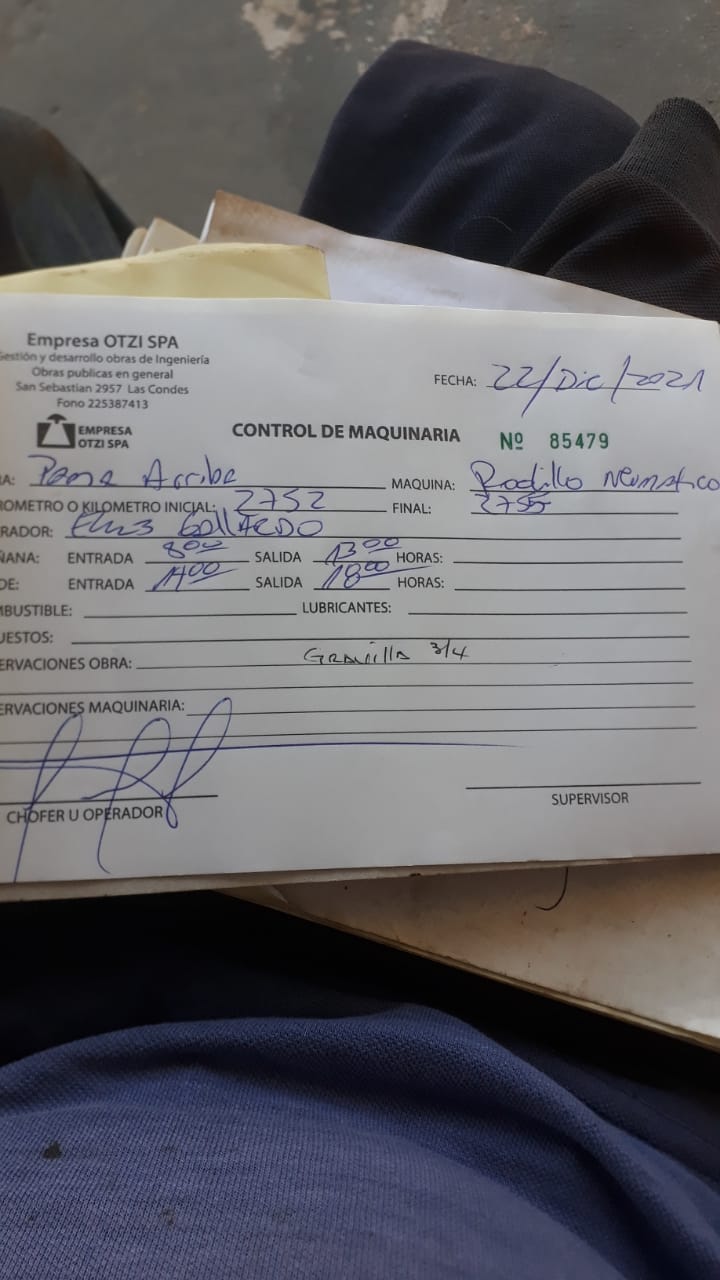 Empresa OTZI SPA
Gestión y desarrollo obras de Ingeniería
Obras publicas en general
San Sebastian 2957 Las Condes
Fono 225387413
EMPRESA
OTZI SPA
FECHA: 22/Dic/2021
CONTROL DE MAQUINARIA Nº 85479
A: Pama Arriba MAQUINA: Rodillo Neumatico
ROMETRO O KILOMETRO INICIAL: 2752 FINAL: 2755
RADOR: GallARDO
ÑANA: ENTRADA 8:00 SALIDA 13:00 HORAS:
DE: ENTRADA 14:00 SALIDA 18:00 HORAS:
MBUSTIBLE: LUBRICANTES:
UESTOS:
ERVACIONES OBRA: Gravilla 3/4
ERVACIONES MAQUINARIA:
CHOFER U OPERADOR
SUPERVISOR